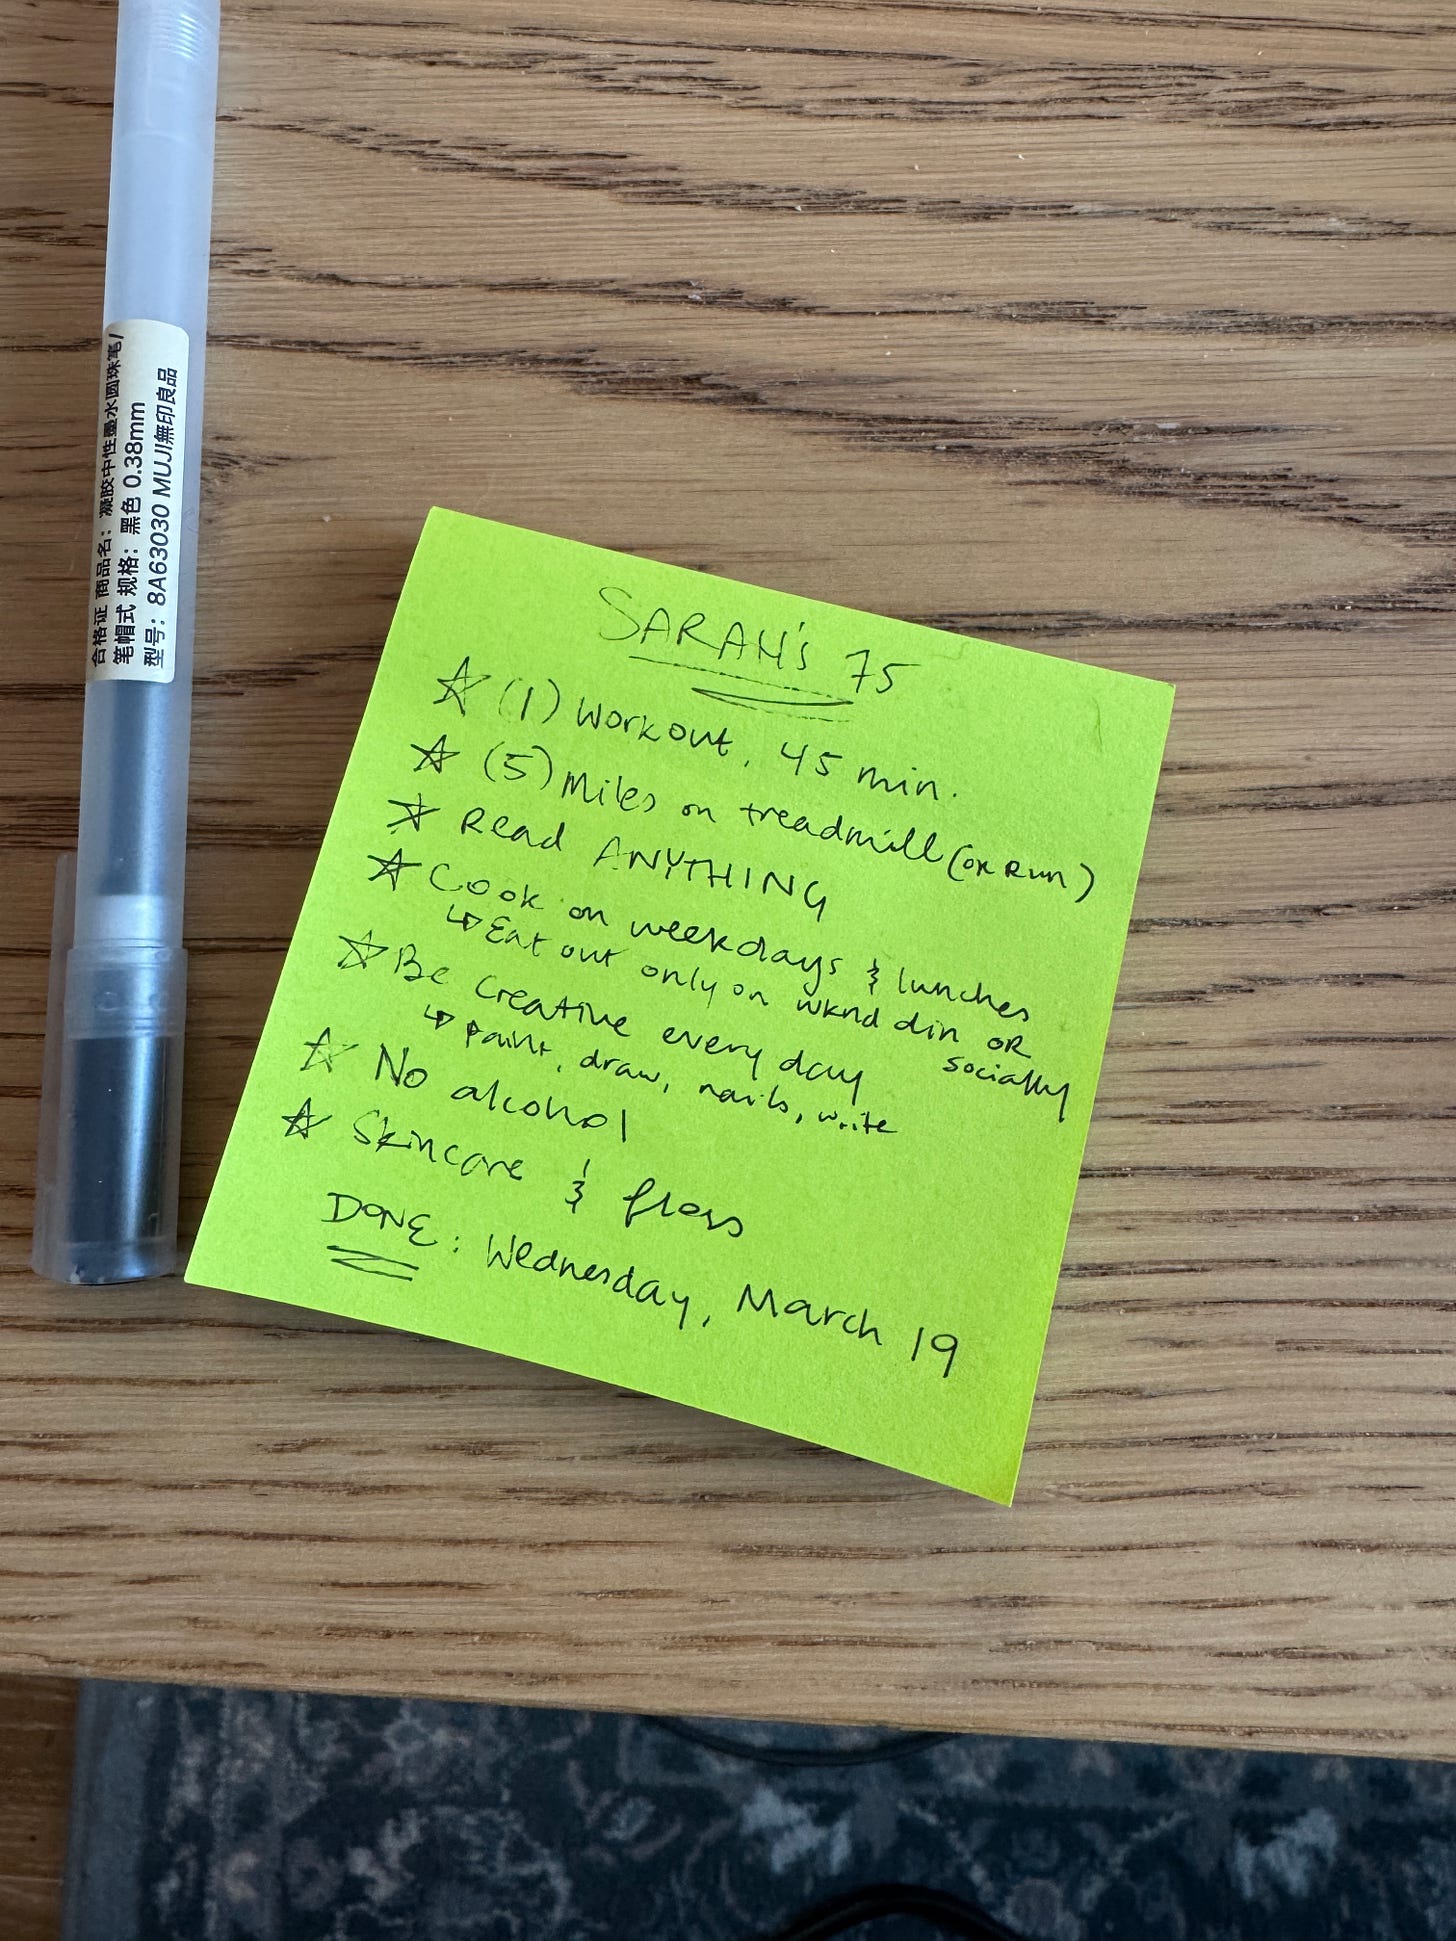 合格证 商品名：凝胶中性墨水圆珠笔/
笔帽式 规格：黑色 0.38mm
型号：8A63030 MUJI無印良品
SARAH's 75
☆ (1) Workout, 45 min.
☆ (5) Miles on treadmill (OR RUN)
☆ Read ANYTHING
☆ Cook on weekdays & lunches
↳ Eat out only on wknd din OR
socially
☆ Be creative every day
↳ Paint, draw, nails, write
☆ No alcohol
☆ Skincare & floss
DONE: Wednesday, March 19